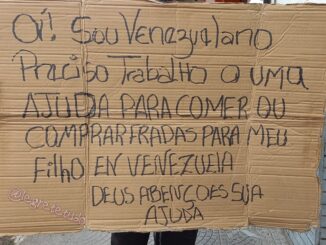 Oi! Sou Venezuelano
Preciso Trabalho o uma
AJUDA PARA COMER OU
COMPRAR FRADAS PARA MEU
Filho EN VENEZUELA
DEUS ABENÇOES SUA
AJUDA